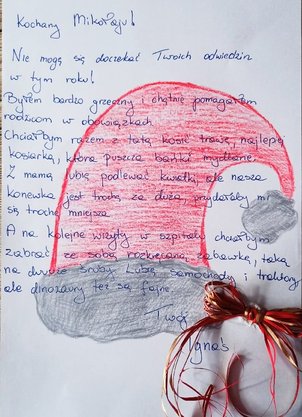 Kochany Mikołaju!
Nie mogę się doczekać Twoich odwiedzin
w tym roku!
Byłem bardzo grzeczny i chętnie pomagałem
rodzicom w obowiązkach.
Chciałbym razem z tatą kosić trawę, najlepiej
kosiarką, która puszcza bańki mydlane.
Z mamą lubię podlewać kwiatki, ale nasza
konewka jest trochę za duża, przydałaby mi
się trochę mniejsza.
A na kolejne wizyty w szpitalu chciałbym
zabrać ze sobą rozkręcaną zabawkę, taką
na dwusze śruby. Lubię samochody i traktory,
ale dinozaury też są fajne.
Twój
Ignaś